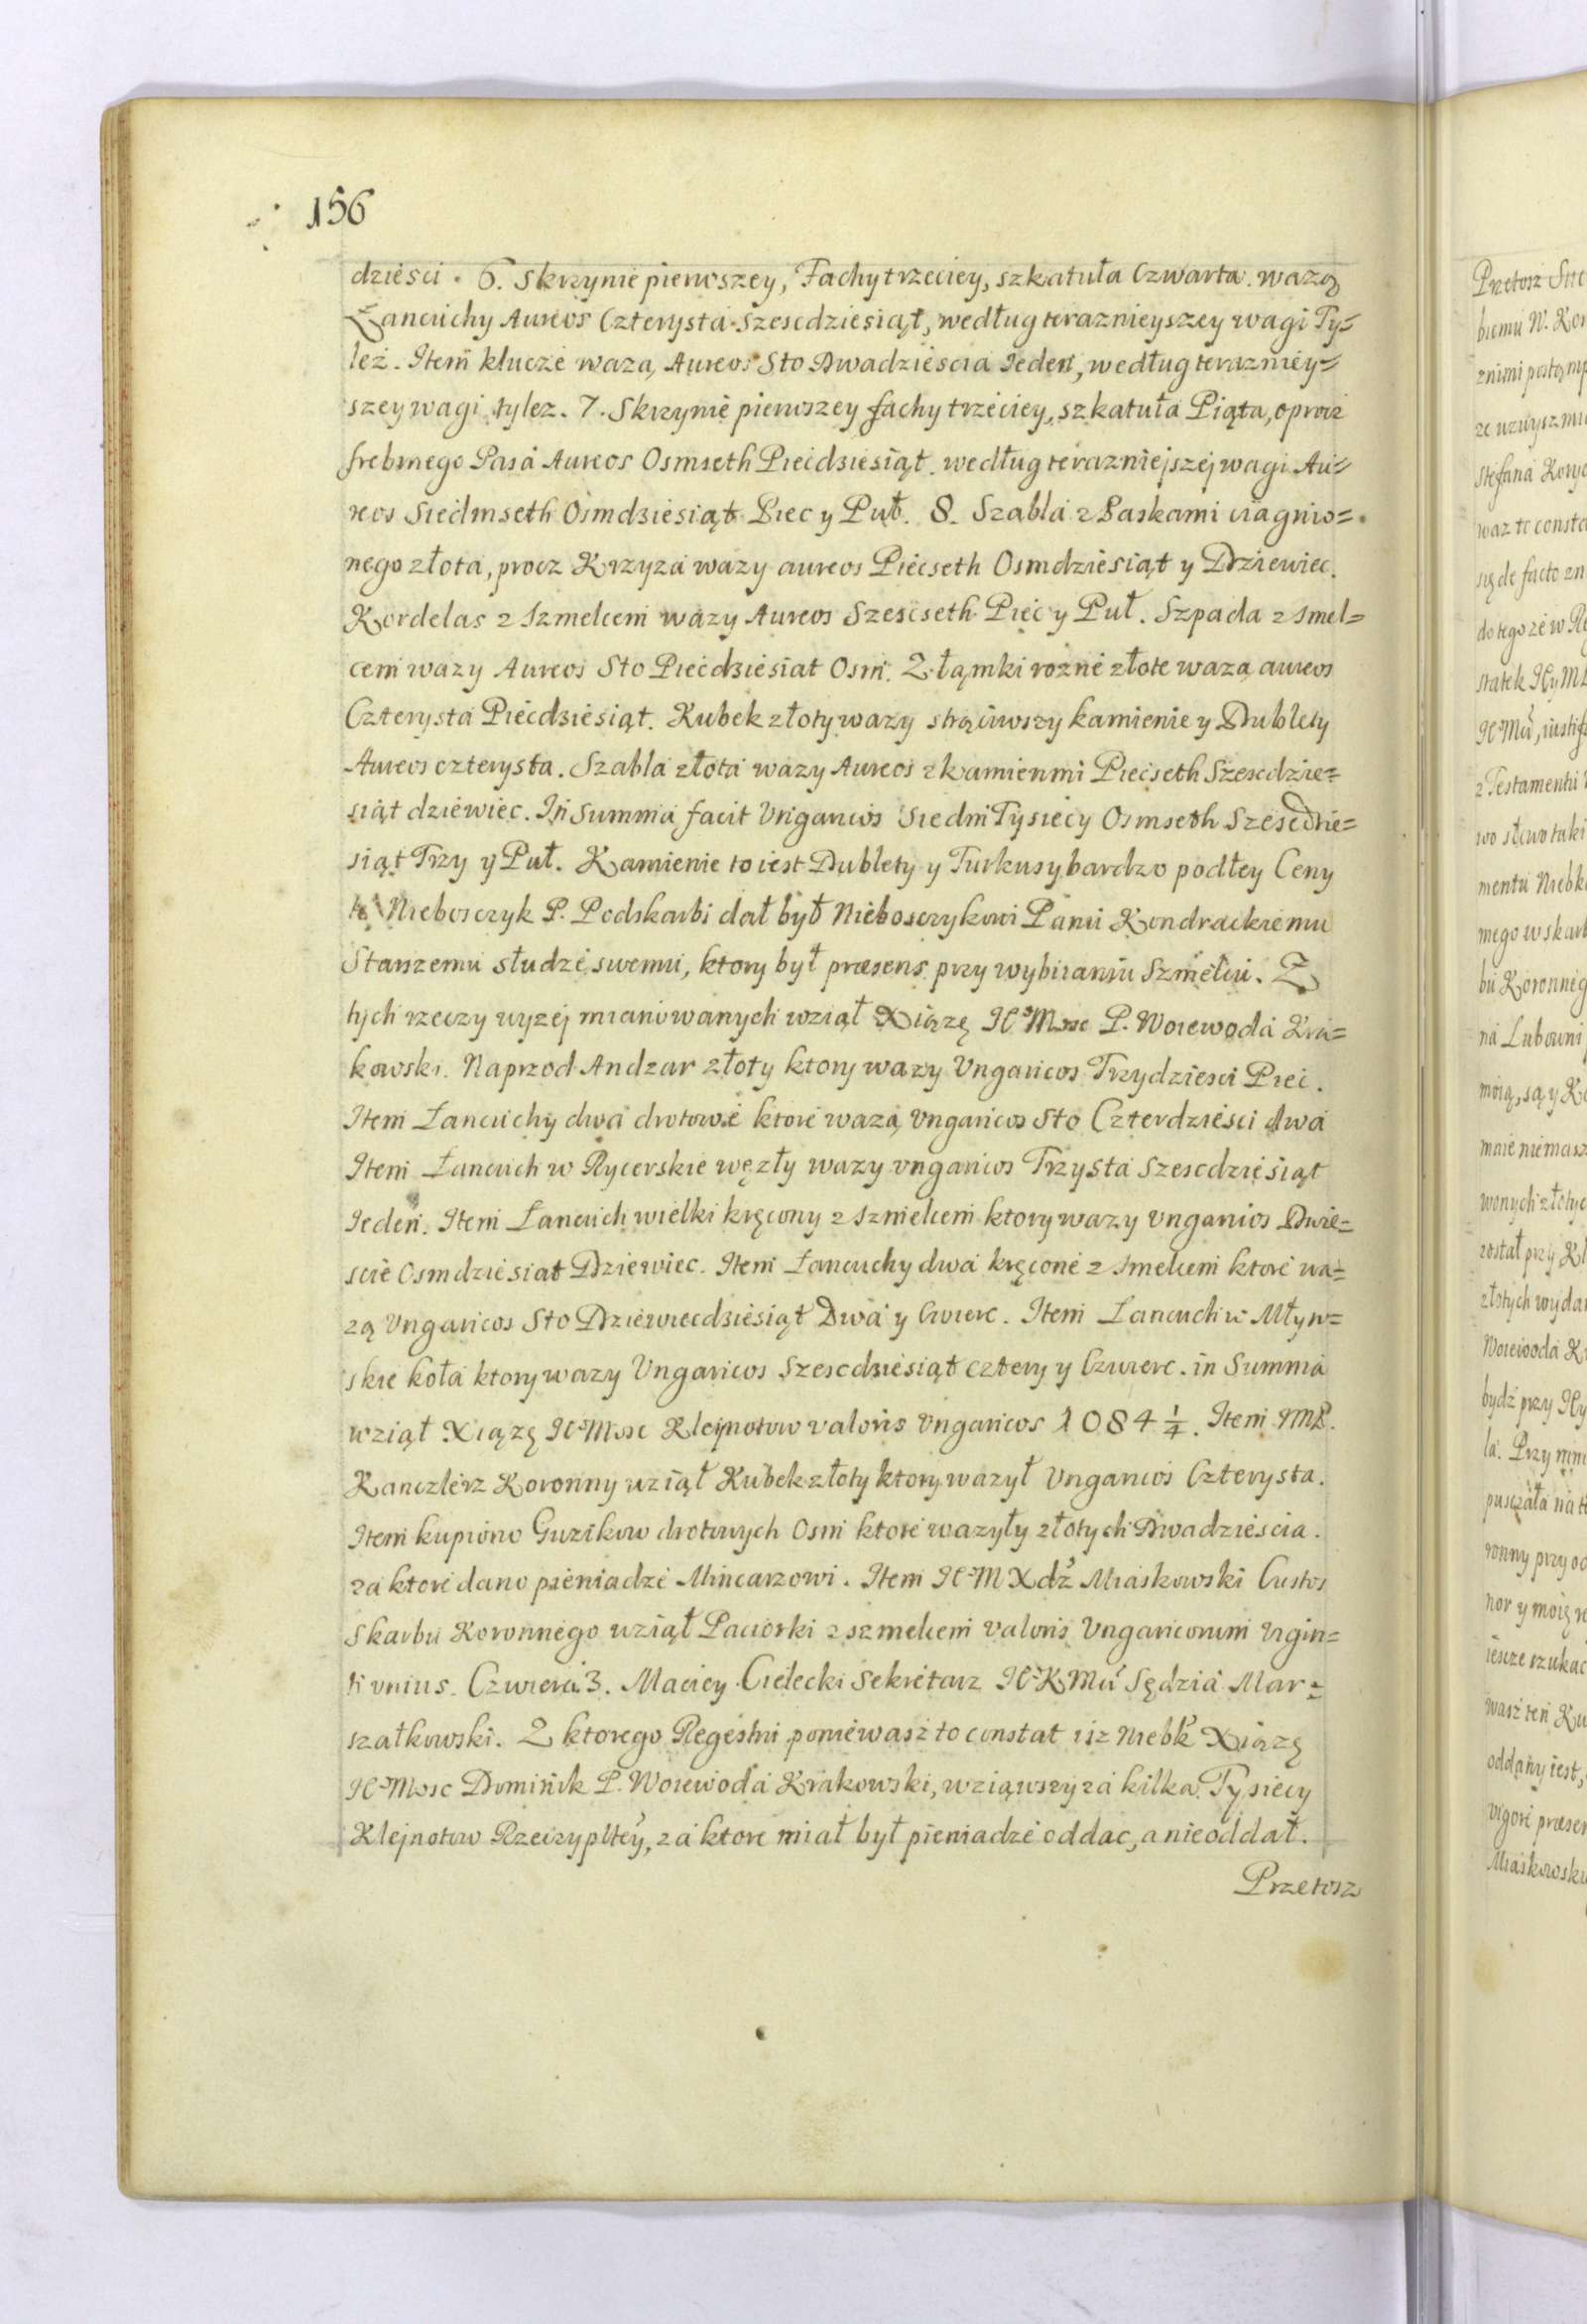 156
dziesci. 6. Skrzynie pierwszey, Fachy trzeciey, szkatuła Czwarta. wazą
Łancuchy Aureos Czterysta Szescdziesiąt, według terazniejszey wagi Ty=
leż. Item klucze wazą Aureos Sto Dwadziescia Jeden, według terazniey=
szey wagi tylez. 7. Skrzynie pierwszey fachy trzeciey, szkatuła Piąta, oprocz
srebrnego Pasa Aureos Osmseth Piecdziesiąt. według terazniejszej wagi Au=
reos Siedmseth Osmdziesiąt Piec y Puł. 8. Szabla z Paskami ciągnio=
nego złota, procz Krzyza wazy aureos Piecseth Osmdziesiąt y Dziewiec.
Kordelas z Szmelcem wazy Aureos Szescseth Piec y Puł. Szpada z smel=
cem wazy Aureos Sto Piecdziesiat Osm. Złąmki rozne złote wazą aureos
Czterysta Piecdziesiąt. Kubek złoty wazy strąciwszy kamienie y Dublety
Aureos czterysta. Szabla złota wazy Aureos z kamienmi Piecseth Szescdzie=
siąt dziewiec. In Summa facit Ungaricos Siedm Tysiecy Osmseth Szescdzie=
siąt Trzy y Puł. Kamienie to iest Dublety y Turkusy bardzo podłey Ceny
Nieboszczyk P. Podskarbi dał był Nieboszczykowi Panu Kondrackiemu
Starszemu słudze swemu, ktory był præsens przy wybiraniu Szmelcu. Z
tych rzeczy wyzej mianowanych wziął Xiązę JeoMosc P. Woiewoda Kra=
kowski. Naprzod Andzar złoty ktory wazy Ungaricos Trzydziesci Piec.
Item Łancuchy dwa drotowe ktore wazą Ungaricos Sto Czterdziesci dwa
Item Łancuch w Rycerskie węzły wazy ungaricos Trzysta Szescdziesiąt
Jeden. Item Łancuch wielki kręcony z szmelcem ktory wazy ungaricos Dwie=
scie Osmdziesiat Dziewiec. Item Łancuchy dwa kręcone z smelcem ktore wa=
zą Ungaricos Sto Dziewiecdziesiąt Dwa y Cwierc. Item Lancuch w Młyn=
skie koła ktory wazy Ungaricos Szescdziesiąt cztery y Czwierc. in Summa
wziął Xiązę JeoMosc Klejnotow valoris Ungaricos 1084 1/4. Item JMP.
Kanclerz Koronny wziął Kubek złoty ktory wazył Ungaricos Czterysta.
Item kupiono Guzikow drotowych Osm ktore wazyły złotych Dwadziescia.
za ktore dano pieniadze Mincarzowi. Item JeoM Xdz Miaskowski Custos
Skarbu Koronnego wziął Paciorki z szmelcem valoris Ungaricorum Vigin=
ti unius. Czwierci 3. Maciey Cielecki Sekretarz JeoKMci Sędzia Mar=
szałkowski. Z ktorego Regestru poniewasz to constat isz Niebk Xiązę
JeoMosc Dominik P. Woiewoda Krakowski, wziąwszy za kilka Tysiecy
Klejnotow Rzeczypltey, za ktore miał był pieniadze oddac, a nieoddał.
Przetosz